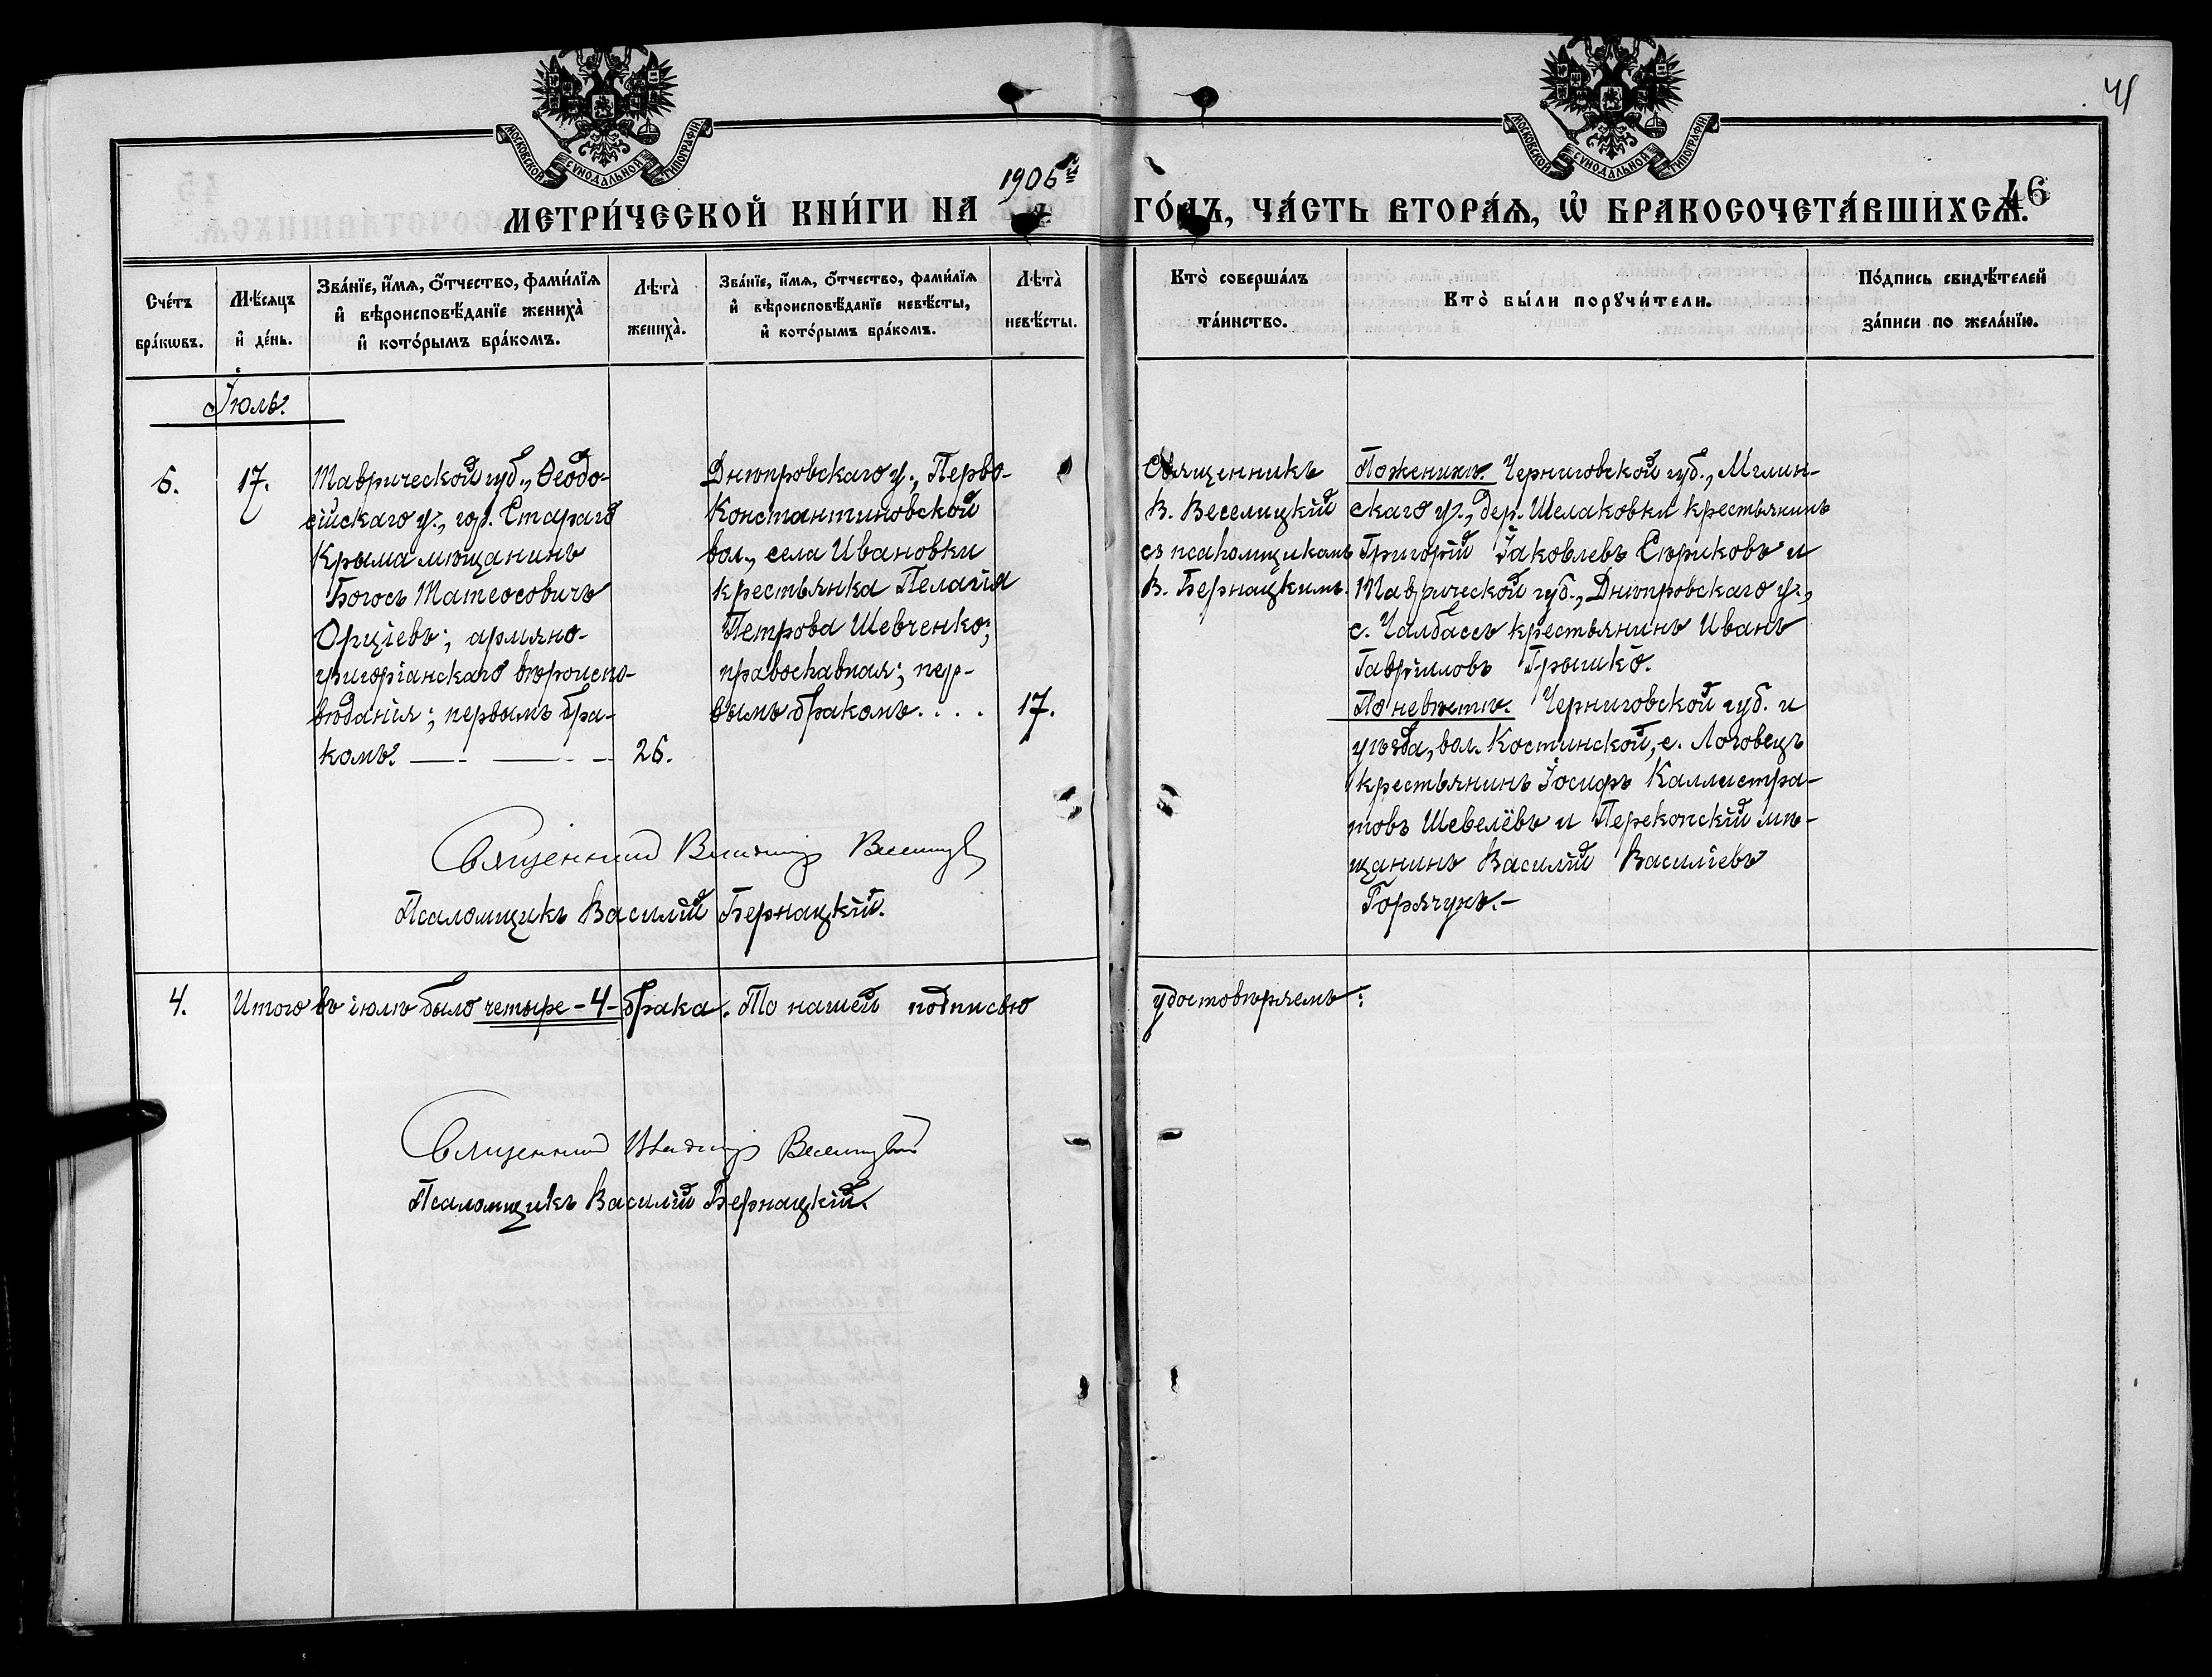 41
МОСКОВСКОЙ СУНОДАЛЬНОЙ ТИПОГРАФІИ
МОСКОВСКОЙ СУНОДАЛЬНОЙ ТИПОГРАФІИ
МЕТРИ́ЧЕСКОЙ КНИ́ГИ НА 1906й ГО́ДЪ, ЧА́СТЬ ВТОРА́Ѧ, Ѽ БРАКОСОЧЕТА́ВШИХСѦ.
46
Сче́тъ бра́кѡвъ.
Мѣ́сяцъ и҆ де́нь.
Зва́нїе, и҆́мѧ, ѻ҆́тчество, фами́лїѧ
и҆ вѣроисповѣ́данїе жениха̀
и҆ кото́рымъ бра́комъ.
Лѣта̀ жениха̀.
Зва́нїе, и҆́мѧ, ѻ҆́тчество, фами́лїѧ
и҆ вѣроисповѣ́данїе невѣ́сты,
и҆ кото́рымъ бра́комъ.
Лѣта̀ невѣ́сты.
Кто̀ соверша́лъ
та́инство.
Кто̀ бы́ли порꙋчи́тели.
По́дпись свидѣ́телей
за́писи по жела́нїю.
Іюль.
6.
17.
Таврической губ., Ѳеодо-
сійскаго у., гор. Стараго
Крыма мѣщанинъ
Богосъ Матеосовичъ
Орціевъ; армяно-
григоріанскаго вѣроиспо-
вѣданія; первымъ бра-
комъ.
26.
Днѣпровскаго у., Перво-
Константиновской
вол., села Ивановки
крестьянка Пелагія
Петрова Шевченко;
православная; пер-
вымъ бракомъ....
17.
Священникъ
В. Веселицкій
съ псаломщикомъ
В. Бернацкимъ.
По женихѣ. Черниговской губ., Мглин-
скаго у., дер. Шелаковки крестьянинъ
Григорій Іаковлевъ Сюриковъ и
Таврической губ., Днѣпровскаго у.,
с. Чалбассъ крестьянинъ Иванъ
Гавріиловъ Грышко.
По невѣстѣ. Черниговской губ. и
уѣзда, вол. Костинской, с. Логовецъ
крестьянинъ Іосифъ Каллистра-
товъ Шевелёвъ и Перекопскій мѣ-
щанинъ Василій Василіевъ
Горячунъ.-
Священникъ Владиміръ Веселицкій
Псаломщикъ Василій Бернацкій.
4.
Итого въ іюлѣ было четыре-4-брака. То нашей подписью удостовѣряемъ:
Священникъ Владиміръ Веселицкій
Псаломщикъ Василій Бернацкій.